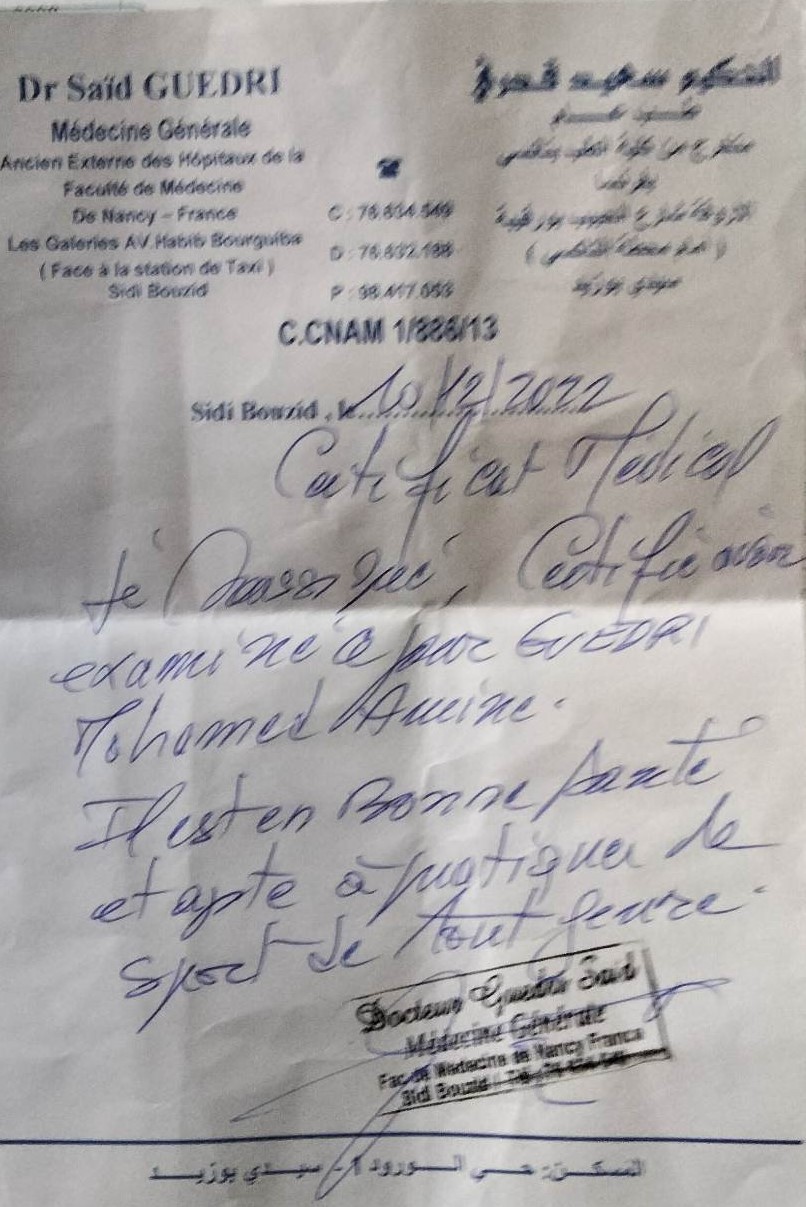 Dr Saïd GUEDRI
Médecine Générale
Ancien Externe des Hôpitaux de la
Faculté de Médecine
De Nancy – France
Les Galeries AV. Habib Bourguiba
( Face à la station de Taxi )
Sidi Bouzid
سعيد
C : 76.634.549
D : 76.632.188
P : 98.417.053
سيدي بوزيد
C.CNAM 1/886/13
Sidi Bouzid , le 10/12/2022
Certificat Médical
Je soussigné, Certifie avoir
examiné ce jour GUEDRI
Mohamed Amine.
Il est en Bonne Santé
et apte à pratiquer de
Sport de tout genre.
Docteur Guedri Said
Médecine Générale
Fac. de Medecine de Nancy France
Sidi Bouzid
السكن: حي الورود 1 - سيدي بوزيد